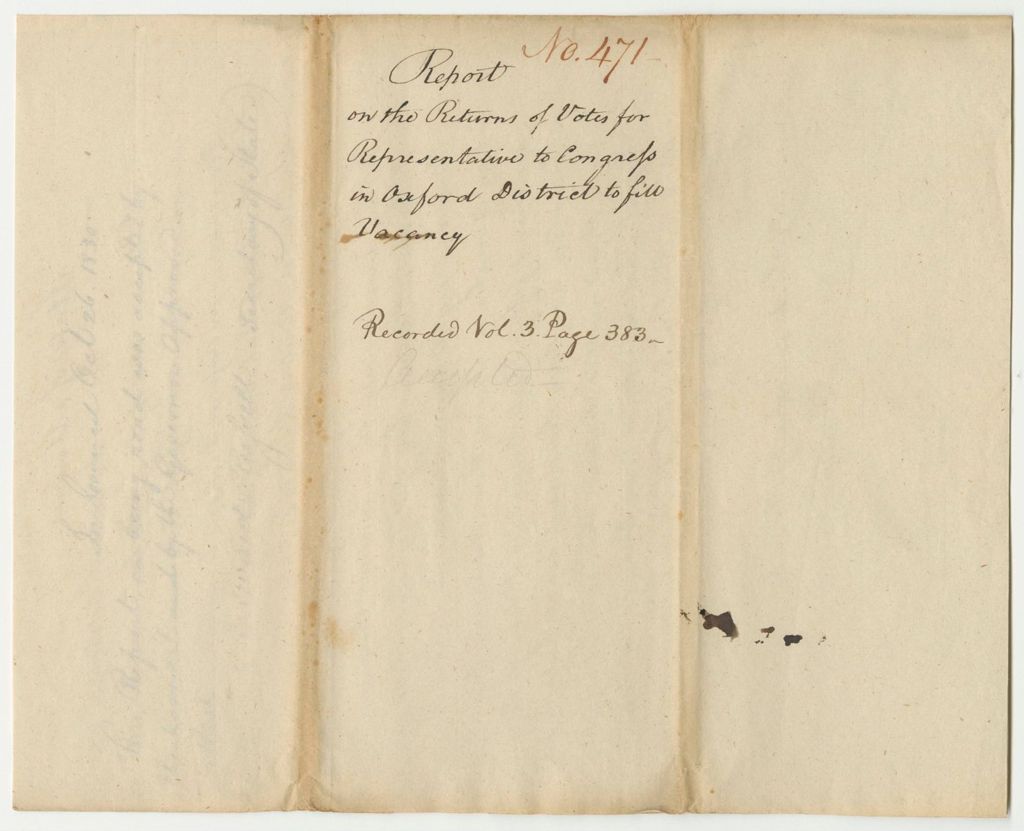 No. 471
Report
on the Returns of Votes for
Representative to Congress
in Oxford District to fill
Vacancy
Recorded Vol. 3. Page 383
Accepted
In Council Oct 26. 1830
This Report on being read was accepted by
the Council and by the Governor Approved
Secretary of State